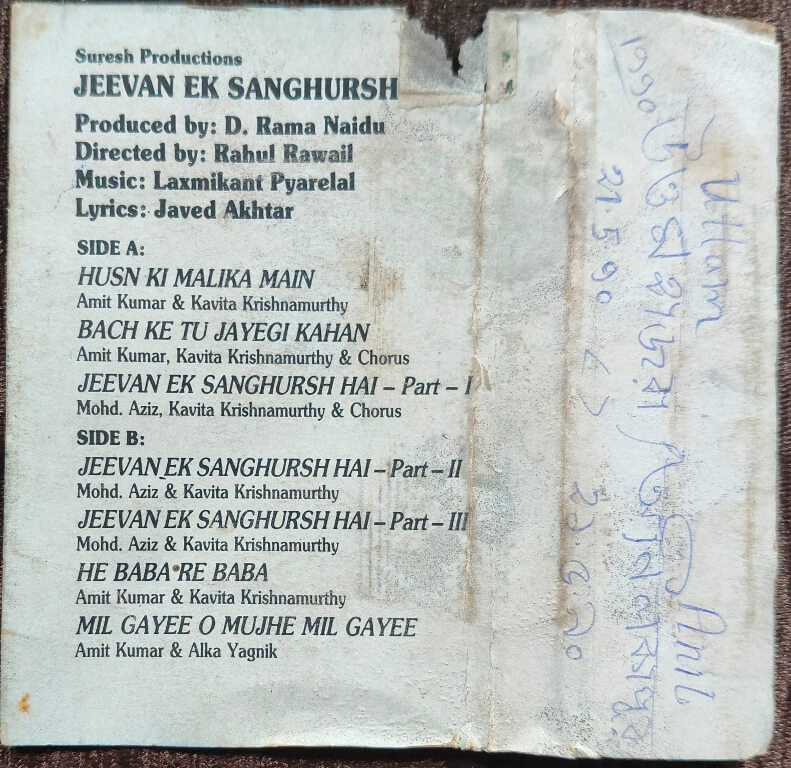 Suresh Productions
JEEVAN EK SANGHURSH
Produced by: D. Rama Naidu
Directed by: Rahul Rawail
Music: Laxmikant Pyarelal
Lyrics: Javed Akhtar
SIDE A:
HUSN KI MALIKA MAIN
Amit Kumar & Kavita Krishnamurthy
BACH KE TU JAYEGI KAHAN
Amit Kumar, Kavita Krishnamurthy & Chorus
JEEVAN EK SANGHURSH HAI – Part – I
Mohd. Aziz, Kavita Krishnamurthy & Chorus
SIDE B:
JEEVAN EK SANGHURSH HAI – Part – II
Mohd. Aziz & Kavita Krishnamurthy
JEEVAN EK SANGHURSH HAI – Part – III
Mohd. Aziz & Kavita Krishnamurthy
HE BABA RE BABA
Amit Kumar & Kavita Krishnamurthy
MIL GAYEE O MUJHE MIL GAYEE
Amit Kumar & Alka Yagnik
Uttam Anil
21.5.90